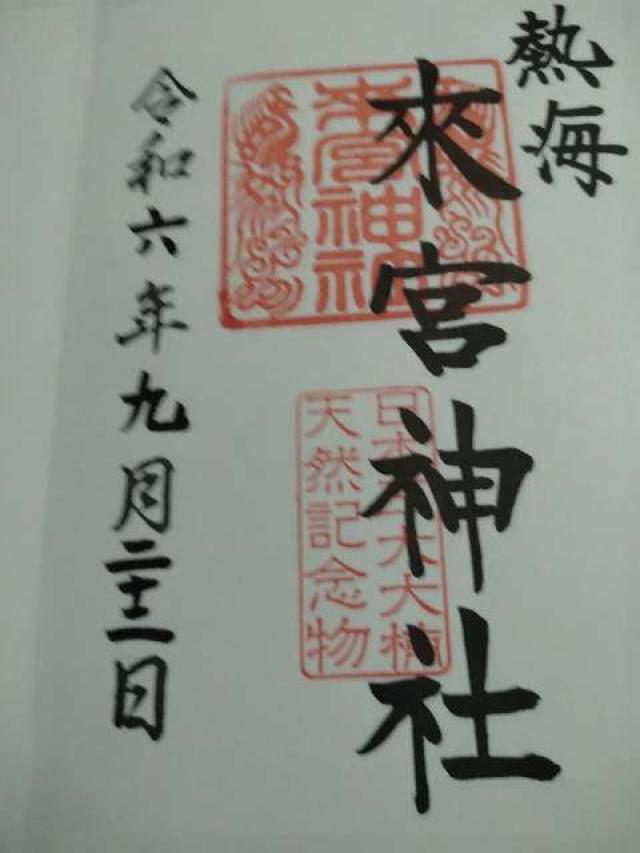 熱海
來宮神社
令和六年九月二十二日
來宮神社
日本 大楠
天然記念物